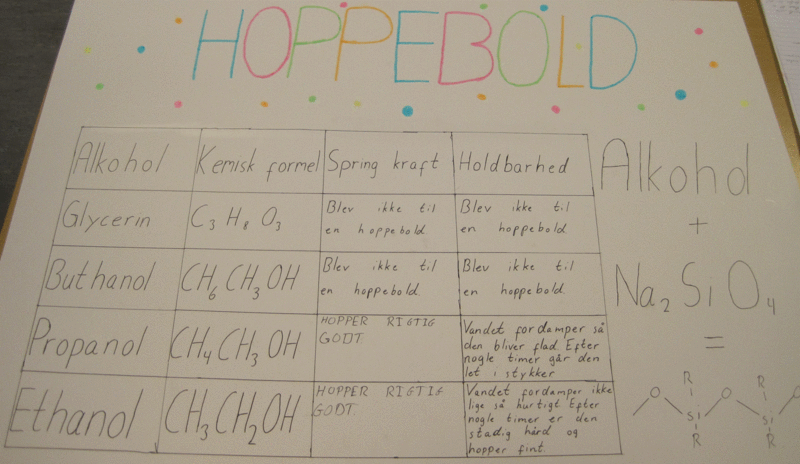 HOPPEBOLD
Alkohol Kemisk formel Spring kraft Holdbarhed
Glycerin C₃ H₈ O₃ Blev ikke til Blev ikke til
en hoppebold en hoppebold
Buthanol CH₆CH₃OH Blev ikke til Blev ikke til
en hoppebold en hoppebold
Propanol CH₄CH₃OH HOPPER RIGTIG
GODT
Vandet fordamper så
den bliver flad Efter
nogle timer går den
let i stykker
Ethanol CH₃CH₂OH HOPPER RIGTIG
GODT
Vandet fordamper ikke
lige så hurtigt Efter
nogle timer er den
stadig hård og
hopper fint.
Alkohol
+
Na₂SiO₄
=
R R
O O O
Si Si
R R